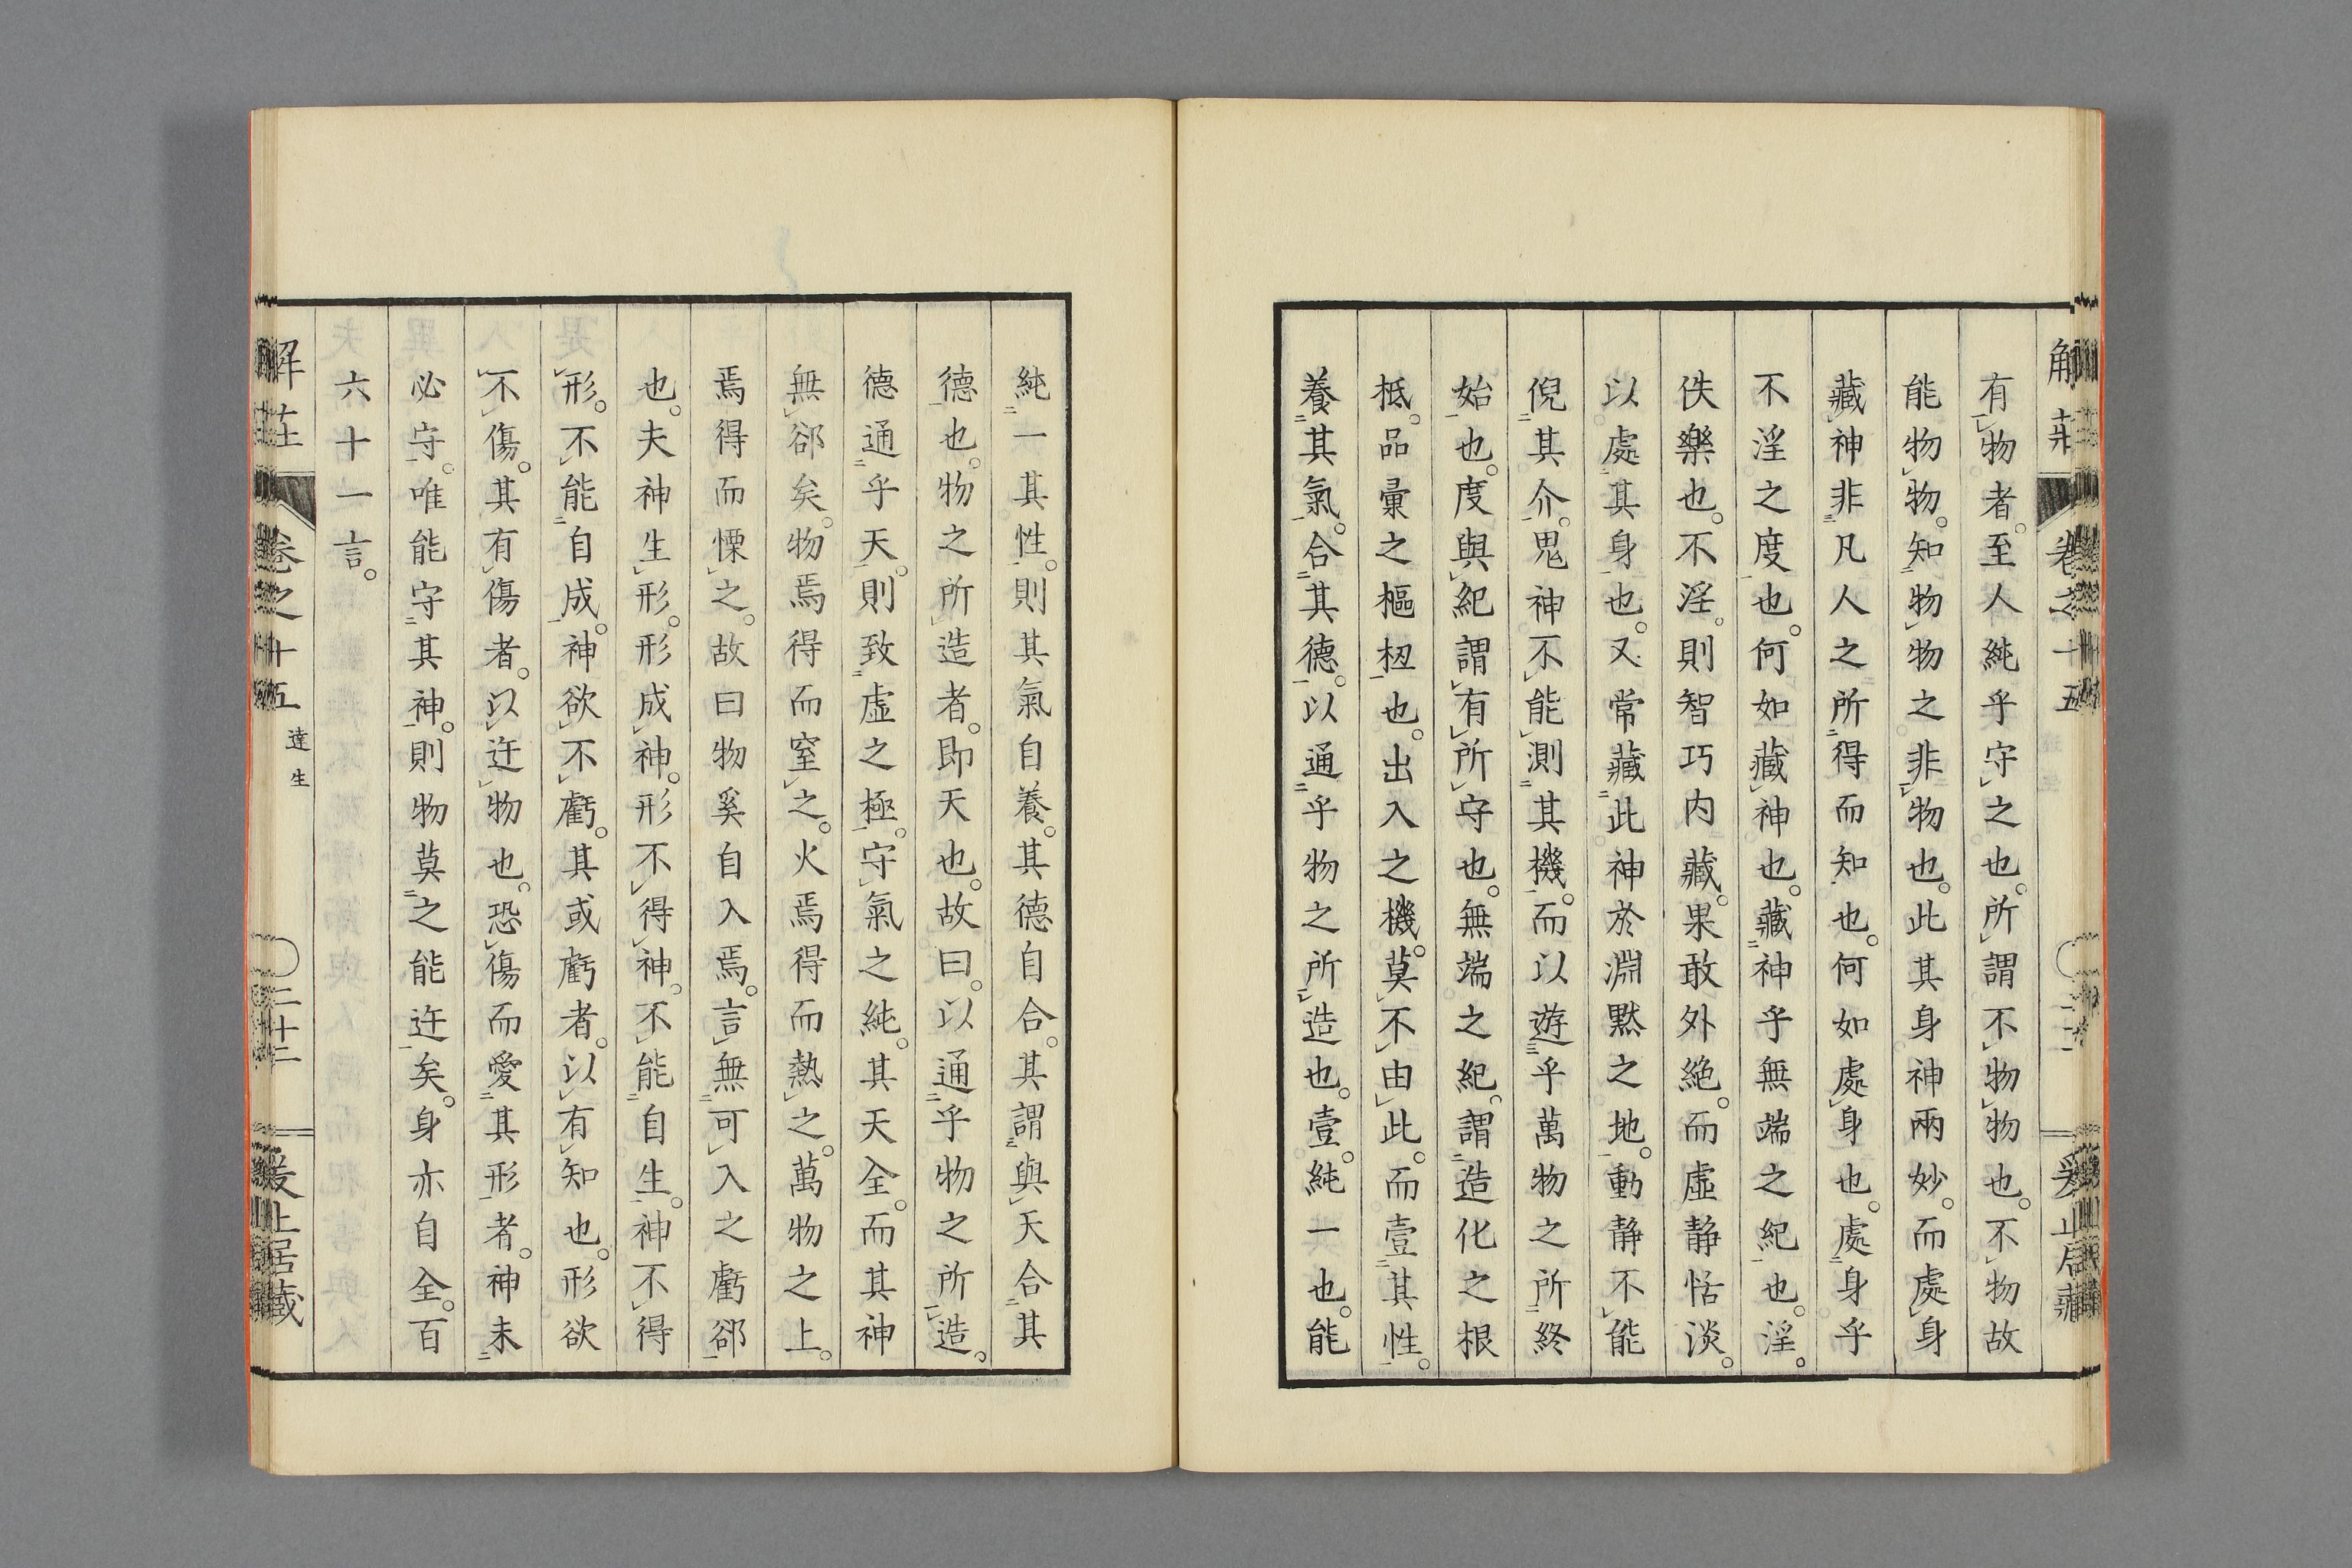 有物者。至人純乎守之也。所謂不物物也。不物故
能物物。知物物之非物也。此其身神兩妙。而處身
藏神非凡人之所得而知也。何如處身也。處身乎
不淫之度也。何如藏神也。藏神乎無端之紀也。淫。
佚樂也。不淫。則智巧内藏。果敢外絶。而虛静恬淡。
以處其身也。又常藏此神於淵黙之地。動静不能
倪其介。鬼神不能測其機。而以遊乎萬物之所終
始也。度與紀謂有所守也。無端之紀。謂造化之根
柢。品彙之樞杻也。出入之機。莫不由此。而壹其性。
養其氣。合其德。以通乎物之所造也。壹。純一也。能
純一其性。則其氣自養。其德自合。其謂與天合其
德也。物之所造者。即天也。故曰。以通乎物之所造。
德通乎天。則致虛之極。守氣之純。其天全。而其神
無郤矣。物焉得而窒之。火焉得而熱之。萬物之上。
焉得而慄之。故曰物奚自入焉。言無可入之虧郤
也。夫神生形。形成神。形不得神。不能自生。神不得
形。不能自成。神欲不虧。其或虧者。以有知也。形欲
不傷。其有傷者。以迕物也。恐傷而愛其形者。神未
必守。唯能守其神。則物莫之能迕矣。身亦自全。百
六十一言。
解莊 卷之十五 達生 二十二 爰止居藏